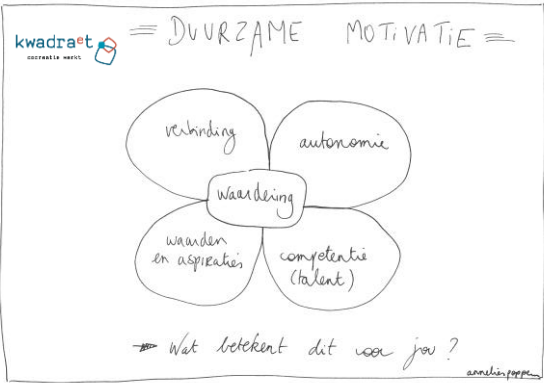 kwadraet
cocreatie werkt
DUURZAME MOTIVATIE
verbinding
autonomie
waardering
waarden
en aspiraties
competentie
(talent)
Wat betekent dit voor jou?
anneliespoppe